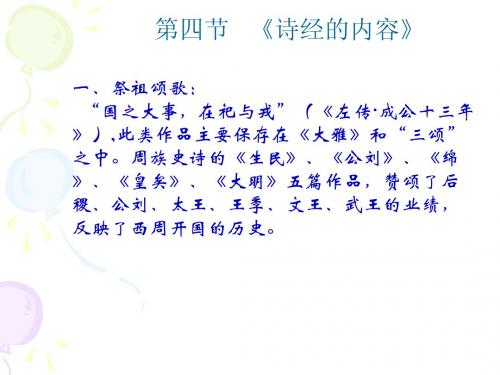 第四节 《诗经的内容》
一、祭祖颂歌：
“国之大事，在祀与戎”（《左传·成公十三年
》）,此类作品主要保存在《大雅》和“三颂”
之中。周族史诗的《生民》、《公刘》、《绵
》、《皇矣》、《大明》五篇作品，赞颂了后
稷、公刘、太王、王季、文王、武王的业绩，
反映了西周开国的历史。